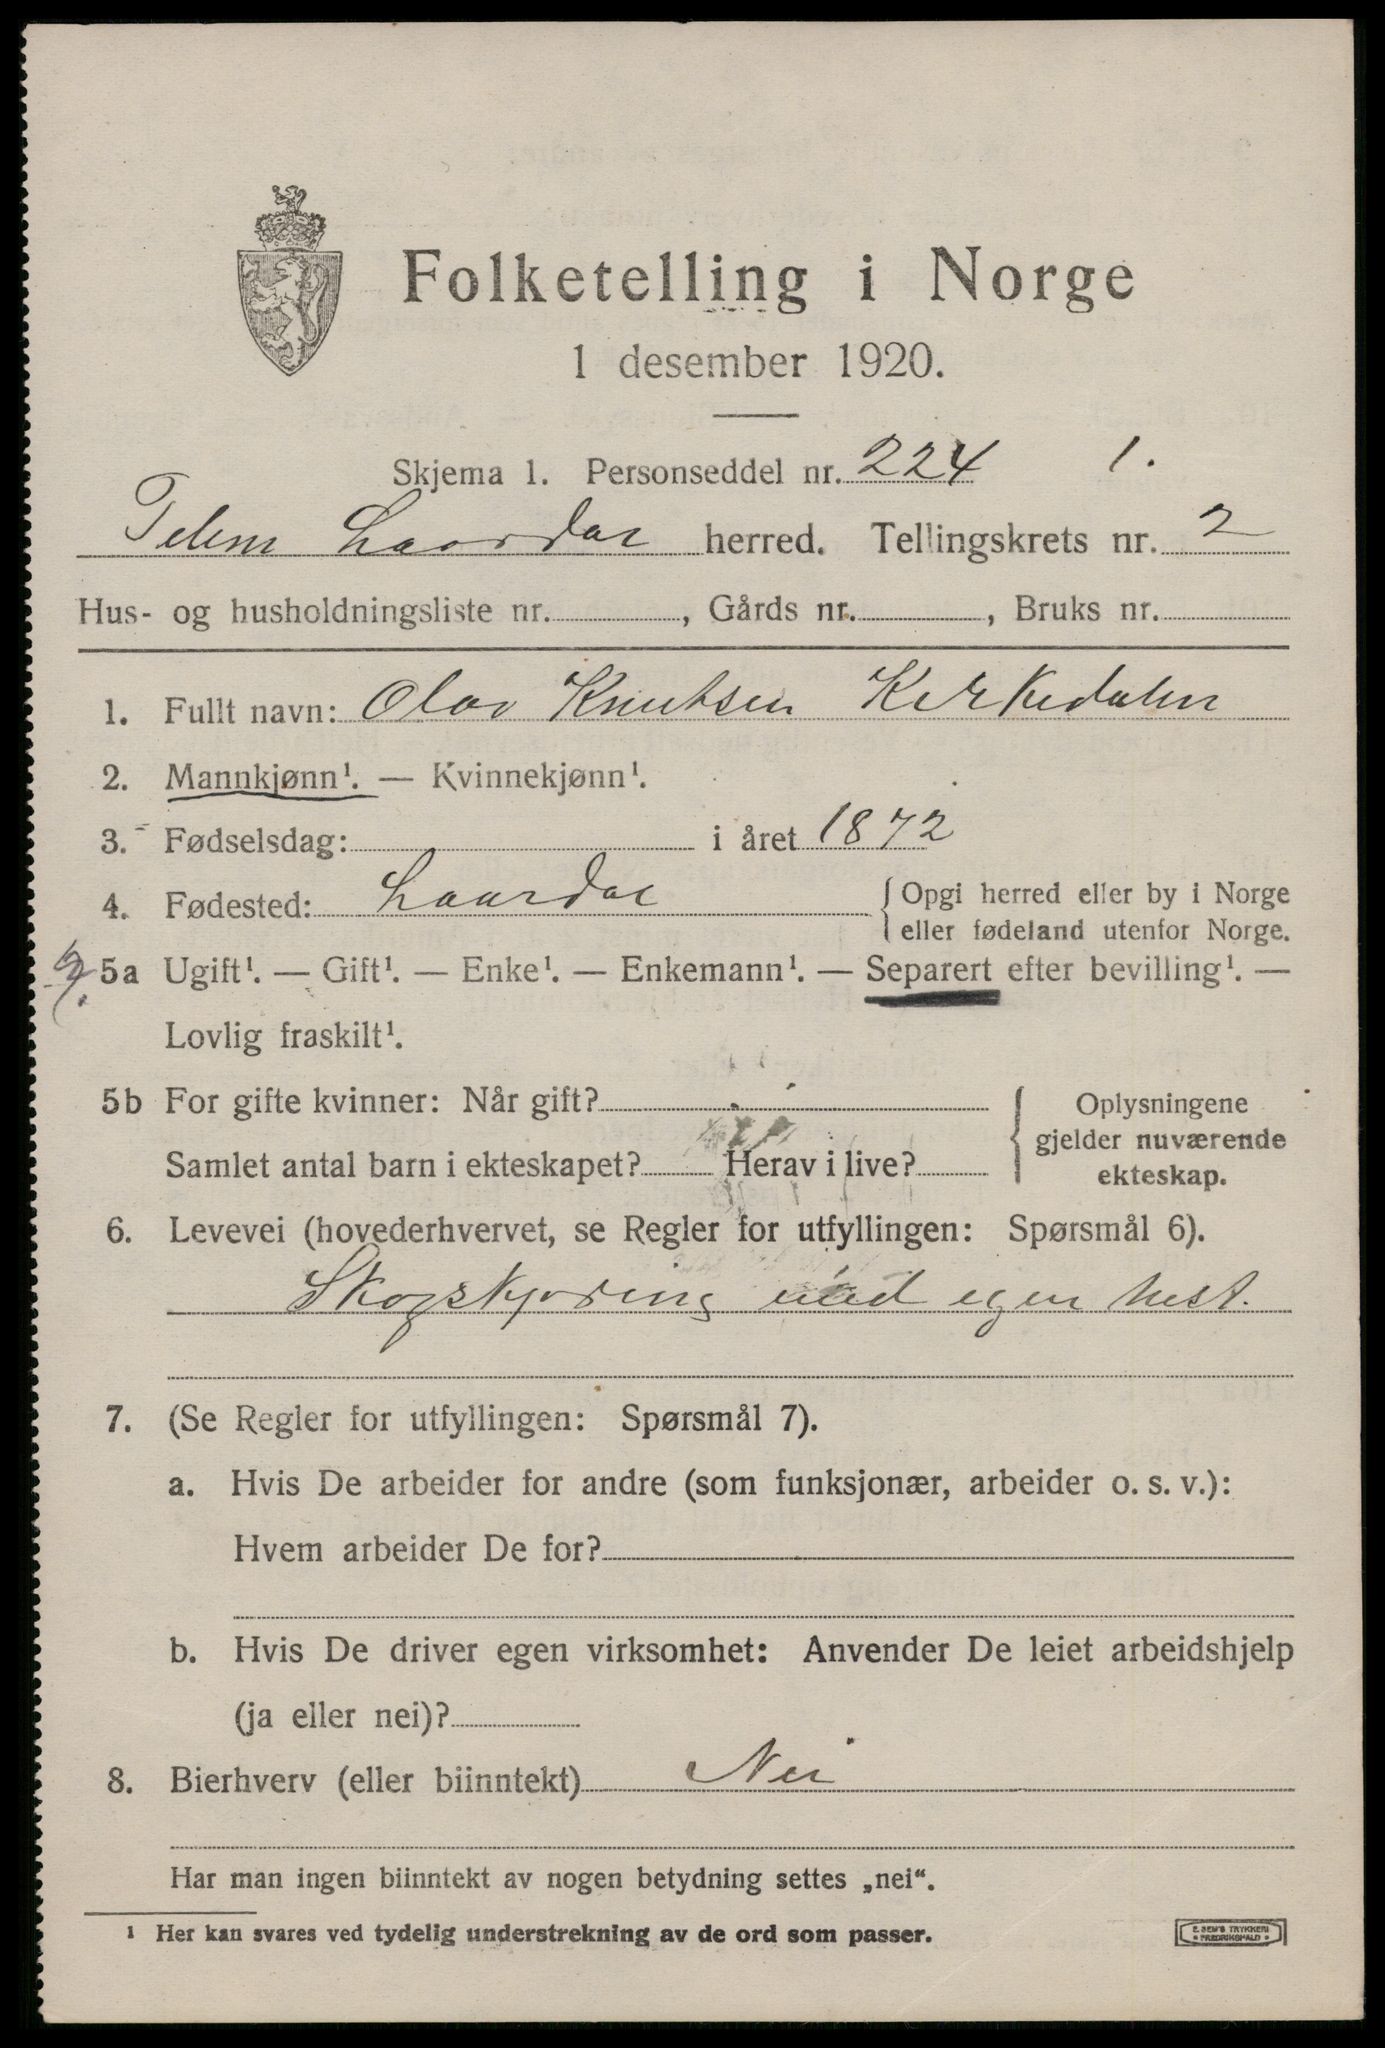 Folketelling i Norge
1 desember 1920.
Skjema 1. Personseddel nr. 224 1.
Telem Laardal herred. Tellingskrets nr. 2
Hus- og husholdningsliste nr. , Gårds nr. , Bruks nr.
1. Fullt navn: Olav Knutsen Kirkedalen
2. Mannkjønn¹. — Kvinnekjønn¹.
3. Fødselsdag: i året 1872
4. Fødested: Laardal { Opgi herred eller by i Norge
eller fødeland utenfor Norge.
5a Ugift¹. — Gift¹. — Enke¹. — Enkemann¹. — Separert efter bevilling¹. —
Lovlig fraskilt¹.
5b For gifte kvinner: Når gift? { Oplysningene
Samlet antal barn i ekteskapet? Herav i live? gjelder nuværende
ekteskap.
6. Levevei (hovederhvervet, se Regler for utfyllingen: Spørsmål 6).
Skogskjøring med egen hest.
7. (Se Regler for utfyllingen: Spørsmål 7).
a. Hvis De arbeider for andre (som funksjonær, arbeider o. s. v.):
Hvem arbeider De for?
b. Hvis De driver egen virksomhet: Anvender De leiet arbeidshjelp
(ja eller nei)?
8. Bierhverv (eller biinntekt) Nei
Har man ingen biinntekt av nogen betydning settes „nei“.
¹ Her kan svares ved tydelig understrekning av de ord som passer.
E. SEM'S TRYKKERI
FREDRIKSHALD